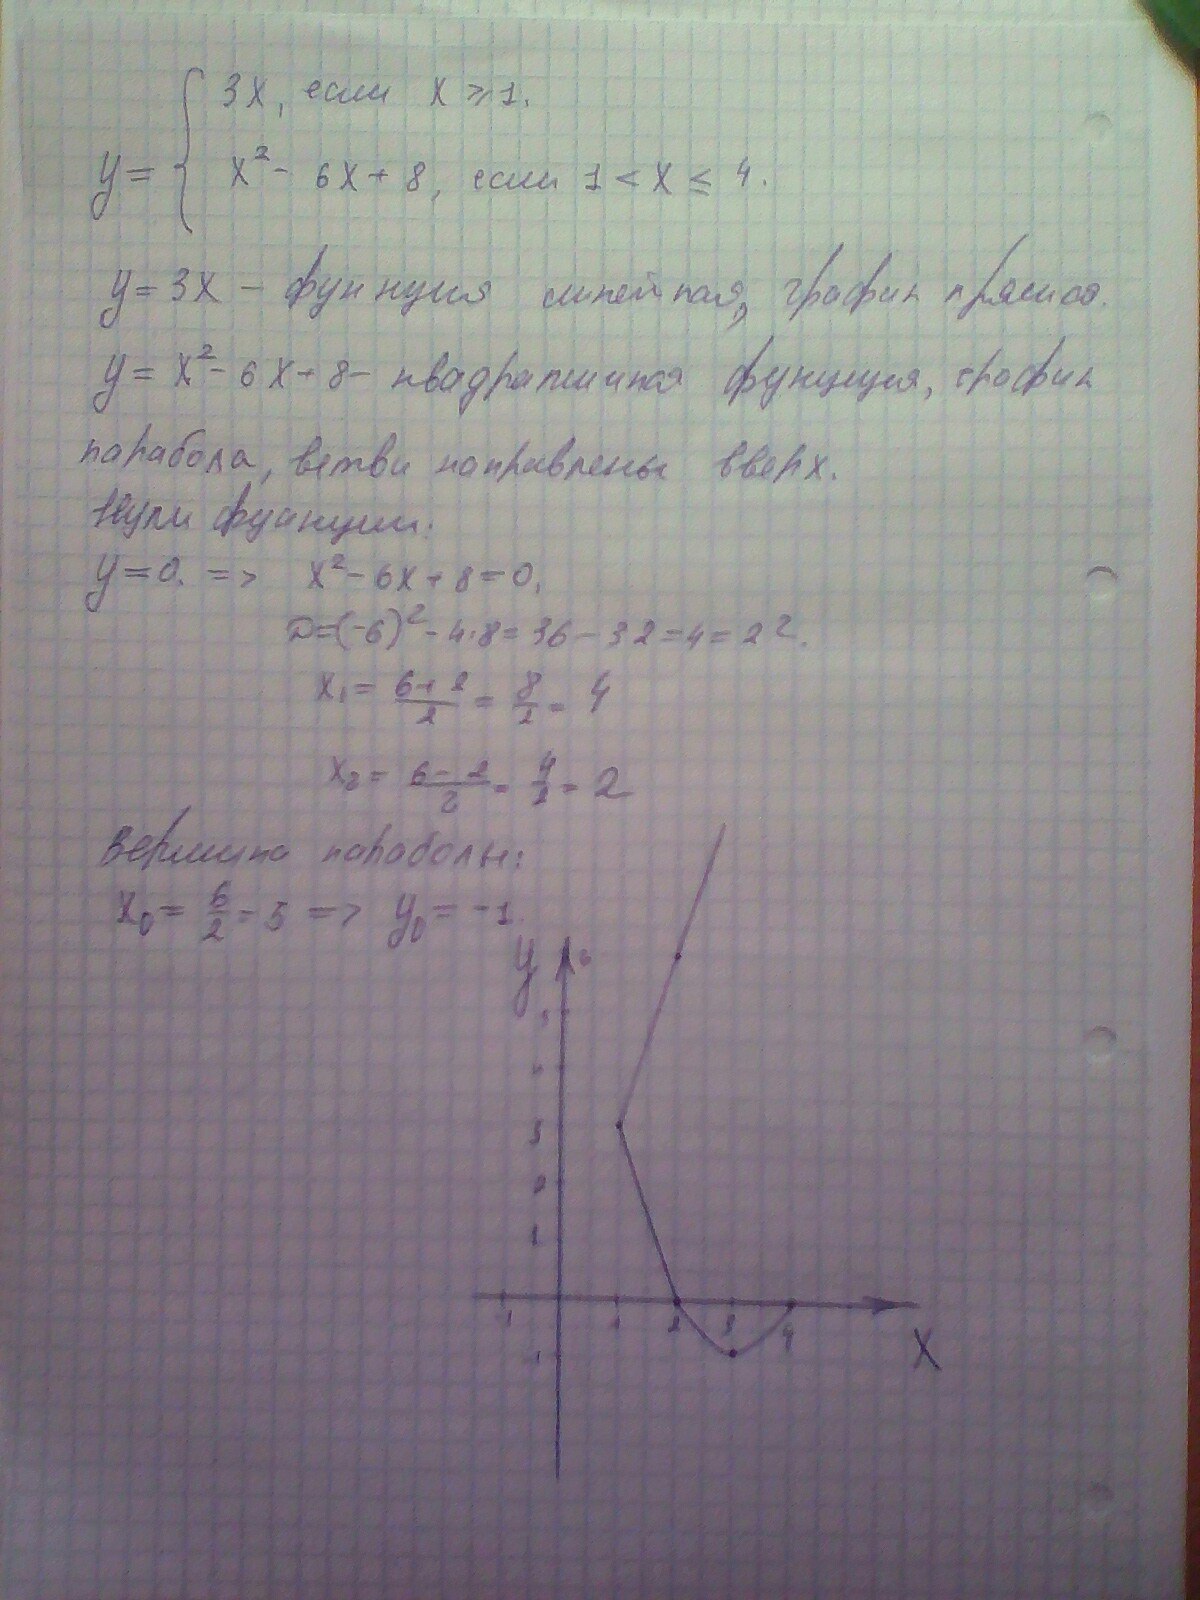 y = { 3x, если x ≥ 1.
x² - 6x + 8, если 1 < x ≤ 4.
y = 3x – функция линейная, график прямая.
y = x² - 6x + 8 – квадратичная функция, график
парабола, ветви направлены вверх.
Нули функции:
y = 0. => x² - 6x + 8 = 0.
D = (-6)² - 4·8 = 36 - 32 = 4 = 2².
x₁ = (6+2)/2 = 8/2 = 4
x₂ = (6-2)/2 = 4/2 = 2
Вершина параболы:
x₀ = 6/2 = 3 => y₀ = -1.
y 6
5
4
3
2
1
-1 1 2 3 4
-1
X